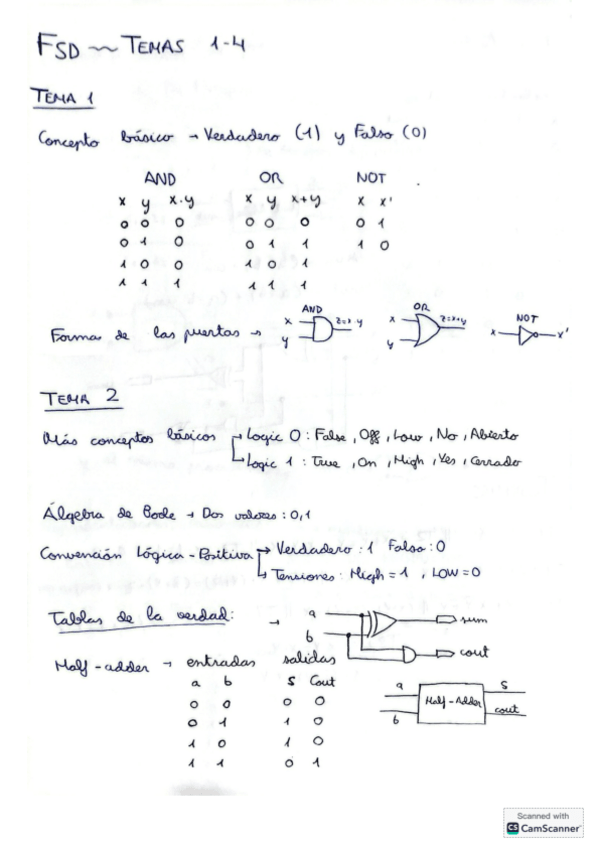 FSD ~ TEMAS 1-4
TEMA 1
Concepto básico → Verdadero (1) y Falso (0)
AND OR NOT
x y x·y x y x+y x x'
0 0 0 0 0 0 0 1
0 1 0 0 1 1 1 0
1 0 0 1 0 1
1 1 1 1 1 1
AND OR NOT
Forma de las puertas → x y z=x·y x y z=x+y x x'
TEMA 2
Más conceptos básicos → Logic 0 : False, Off, Low, No, Abierto
→ Logic 1 : True, On, High, Yes, Cerrado
Álgebra de Boole → Dos valores : 0,1
Convención Lógica-Positiva → Verdadero : 1 Falso : 0
→ Tensiones : High = 1 , LOW = 0
Tablas de la verdad: → a sum
b cout
Half-adder → entradas salidas
a b S Cout a Half-Adder S
0 0 0 0 b cout
0 1 1 0
1 0 1 0
1 1 0 1
Scanned with
CS CamScanner